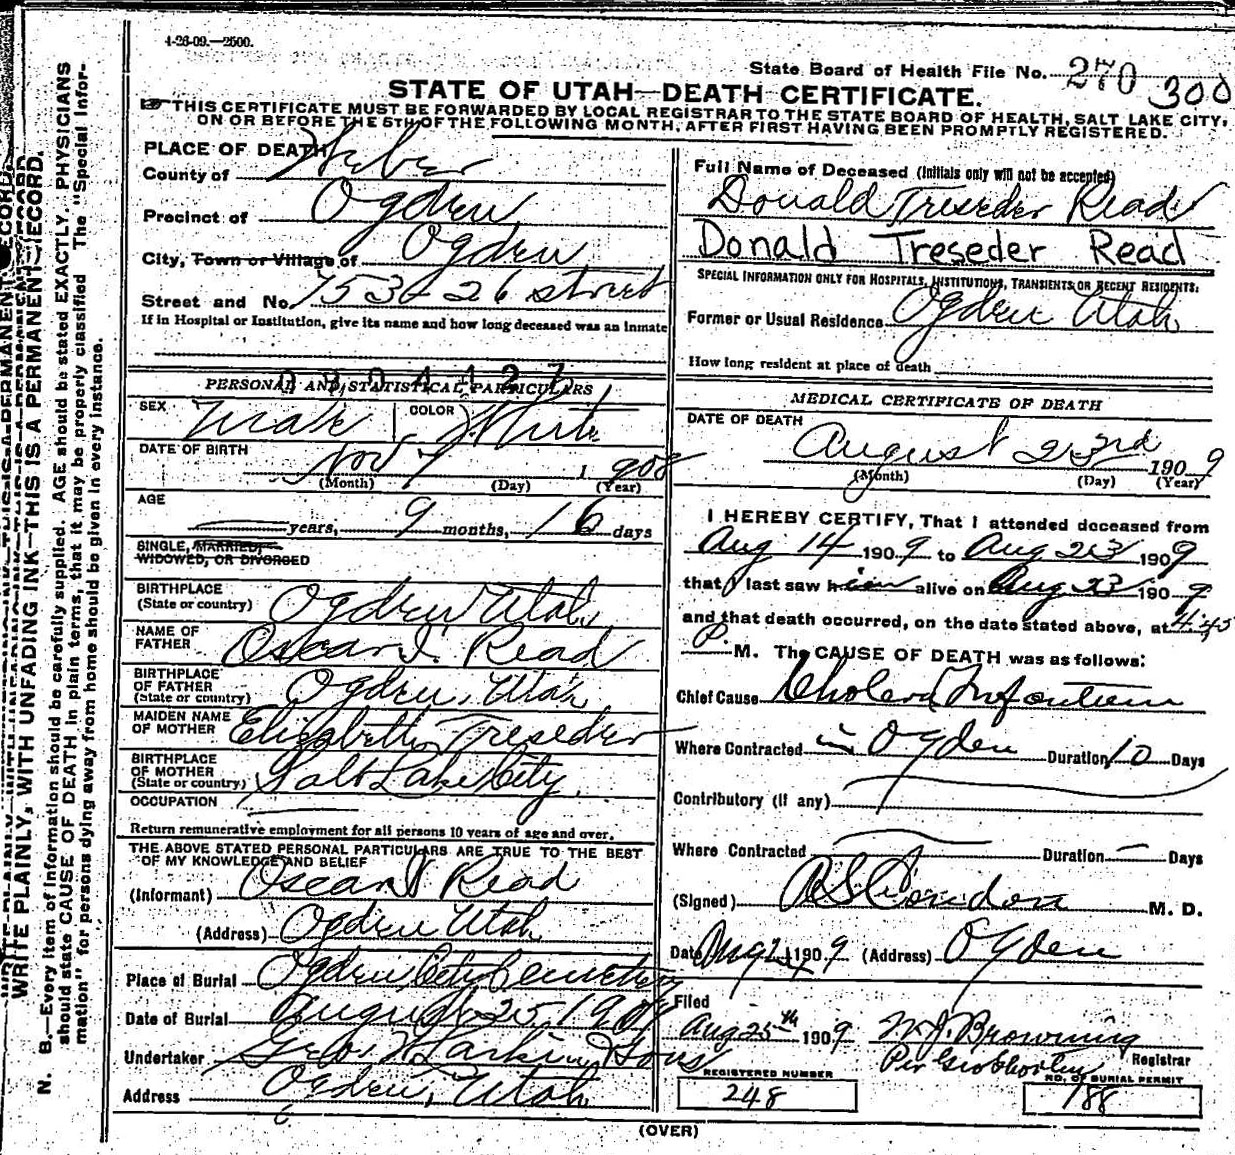 4-26-09.—2500.
State Board of Health File No. 270 300
STATE OF UTAH—DEATH CERTIFICATE.
THIS CERTIFICATE MUST BE FORWARDED BY LOCAL REGISTRAR TO THE STATE BOARD OF HEALTH, SALT LAKE CITY,
ON OR BEFORE THE 5TH OF THE FOLLOWING MONTH, AFTER FIRST HAVING BEEN PROMPTLY REGISTERED.
WRITE PLAINLY, WITH UNFADING INK—THIS IS A PERMANENT RECORD.
N. B.—Every item of information should be carefully supplied. AGE should be stated EXACTLY. PHYSICIANS
should state CAUSE OF DEATH in plain terms, that it may be properly classified. The "Special Infor-
mation" for persons dying away from home should be given in every instance.
PLACE OF DEATH
County of Weber
Precinct of Ogden
City, Town or Village of Ogden
Street and No. 753 26 street
If in Hospital or Institution, give its name and how long deceased was an inmate
0304127
PERSONAL AND STATISTICAL PARTICULARS
SEX Male COLOR White
DATE OF BIRTH Nov 7 1908
(Month) (Day) (Year)
AGE
years, 9 months, 16 days
SINGLE, MARRIED,
WIDOWED, OR DIVORCED
BIRTHPLACE
(State or country) Ogden Utah
NAME OF
FATHER Oscar I. Read
BIRTHPLACE
OF FATHER
(State or country) Ogden, Utah
MAIDEN NAME
OF MOTHER Elizabeth Treseder
BIRTHPLACE
OF MOTHER
(State or country) Salt Lake City
OCCUPATION
Return remunerative employment for all persons 10 years of age and over.
THE ABOVE STATED PERSONAL PARTICULARS ARE TRUE TO THE BEST
OF MY KNOWLEDGE AND BELIEF
(Informant) Oscar Read
(Address) Ogden Utah
Place of Burial Ogden City Cemetery
Date of Burial August 25, 1909
Undertaker Geo. W Larkin & Sons
Address Ogden, Utah
Full Name of Deceased (Initials only will not be accepted)
Donald Treseder Read
Donald Treseder Read
SPECIAL INFORMATION ONLY FOR HOSPITALS, INSTITUTIONS, TRANSIENTS OR RECENT RESIDENTS:
Former or Usual Residence Ogden Utah
How long resident at place of death
MEDICAL CERTIFICATE OF DEATH
DATE OF DEATH
August 23rd 1909
(Month) (Day) (Year)
I HEREBY CERTIFY, That I attended deceased from
Aug 14 1909 to Aug 23 1909
that I last saw him alive on Aug 23 1909
and that death occurred, on the date stated above, at 4.45
P. M. The CAUSE OF DEATH was as follows:
Chief Cause Cholera Infantum
Where Contracted Ogden Duration 10 Days
Contributory (if any)
Where Contracted — Duration — Days
(Signed) A S Condon M. D.
Date Aug 24 1909 (Address) Ogden
Filed
Aug 25th 1909 W. J. Browning
Registrar
Per Geo
REGISTERED NUMBER
248
NO. OF BURIAL PERMIT
188
(OVER)